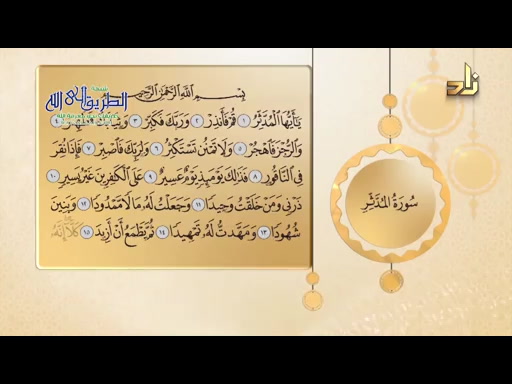 زاد
شبكة
الطريق إلى الله
بِسْمِ اللَّهِ الرَّحْمَٰنِ الرَّحِيمِ
يَا أَيُّهَا الْمُدَّثِّرُ ١ قُمْ فَأَنذِرْ ٢ وَرَبَّكَ فَكَبِّرْ ٣ وَثِيَابَكَ فَطَهِّرْ ٤
وَالرُّجْزَ فَاهْجُرْ ٥ وَلَا تَمْنُن تَسْتَكْثِرُ ٦ وَلِرَبِّكَ فَاصْبِرْ ٧ فَإِذَا نُقِرَ
فِي النَّاقُورِ ٨ فَذَٰلِكَ يَوْمَئِذٍ يَوْمٌ عَسِيرٌ ٩ عَلَى الْكَافِرِينَ غَيْرُ يَسِيرٍ ١٠
ذَرْنِي وَمَنْ خَلَقْتُ وَحِيدًا ١١ وَجَعَلْتُ لَهُ مَالًا مَّمْدُودًا ١٢ وَبَنِينَ
شُهُودًا ١٣ وَمَهَّدتُّ لَهُ تَمْهِيدًا ١٤ ثُمَّ يَطْمَعُ أَنْ أَزِيدَ ١٥ كَلَّا إِنَّهُ
سُورَةُ الْمُدَّثِّرِ